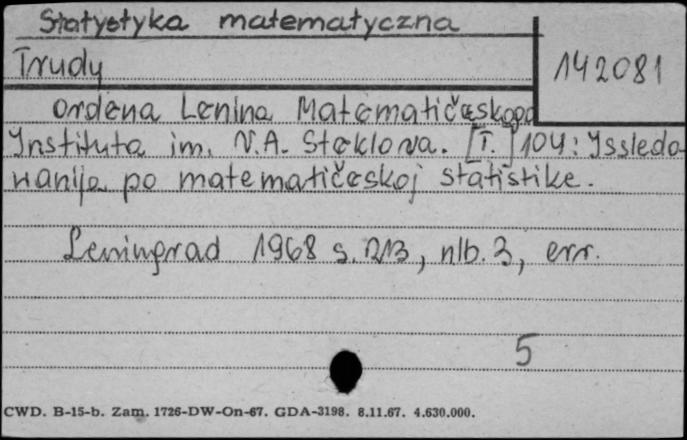 Statystyka matematyczna
Trudy
142081
ordena Lenina Matematičeskogo
Instituta im. V.A. Steklova. [T.] 104: Issledo
vanija po matematičeskoj statistike.
Leningrad 1968 s. 213, nlb. 3, err.
5
CWD. B-15-b. Zam. 1726-DW-On-67. GDA-3198. 8.11.67. 4.630.000.